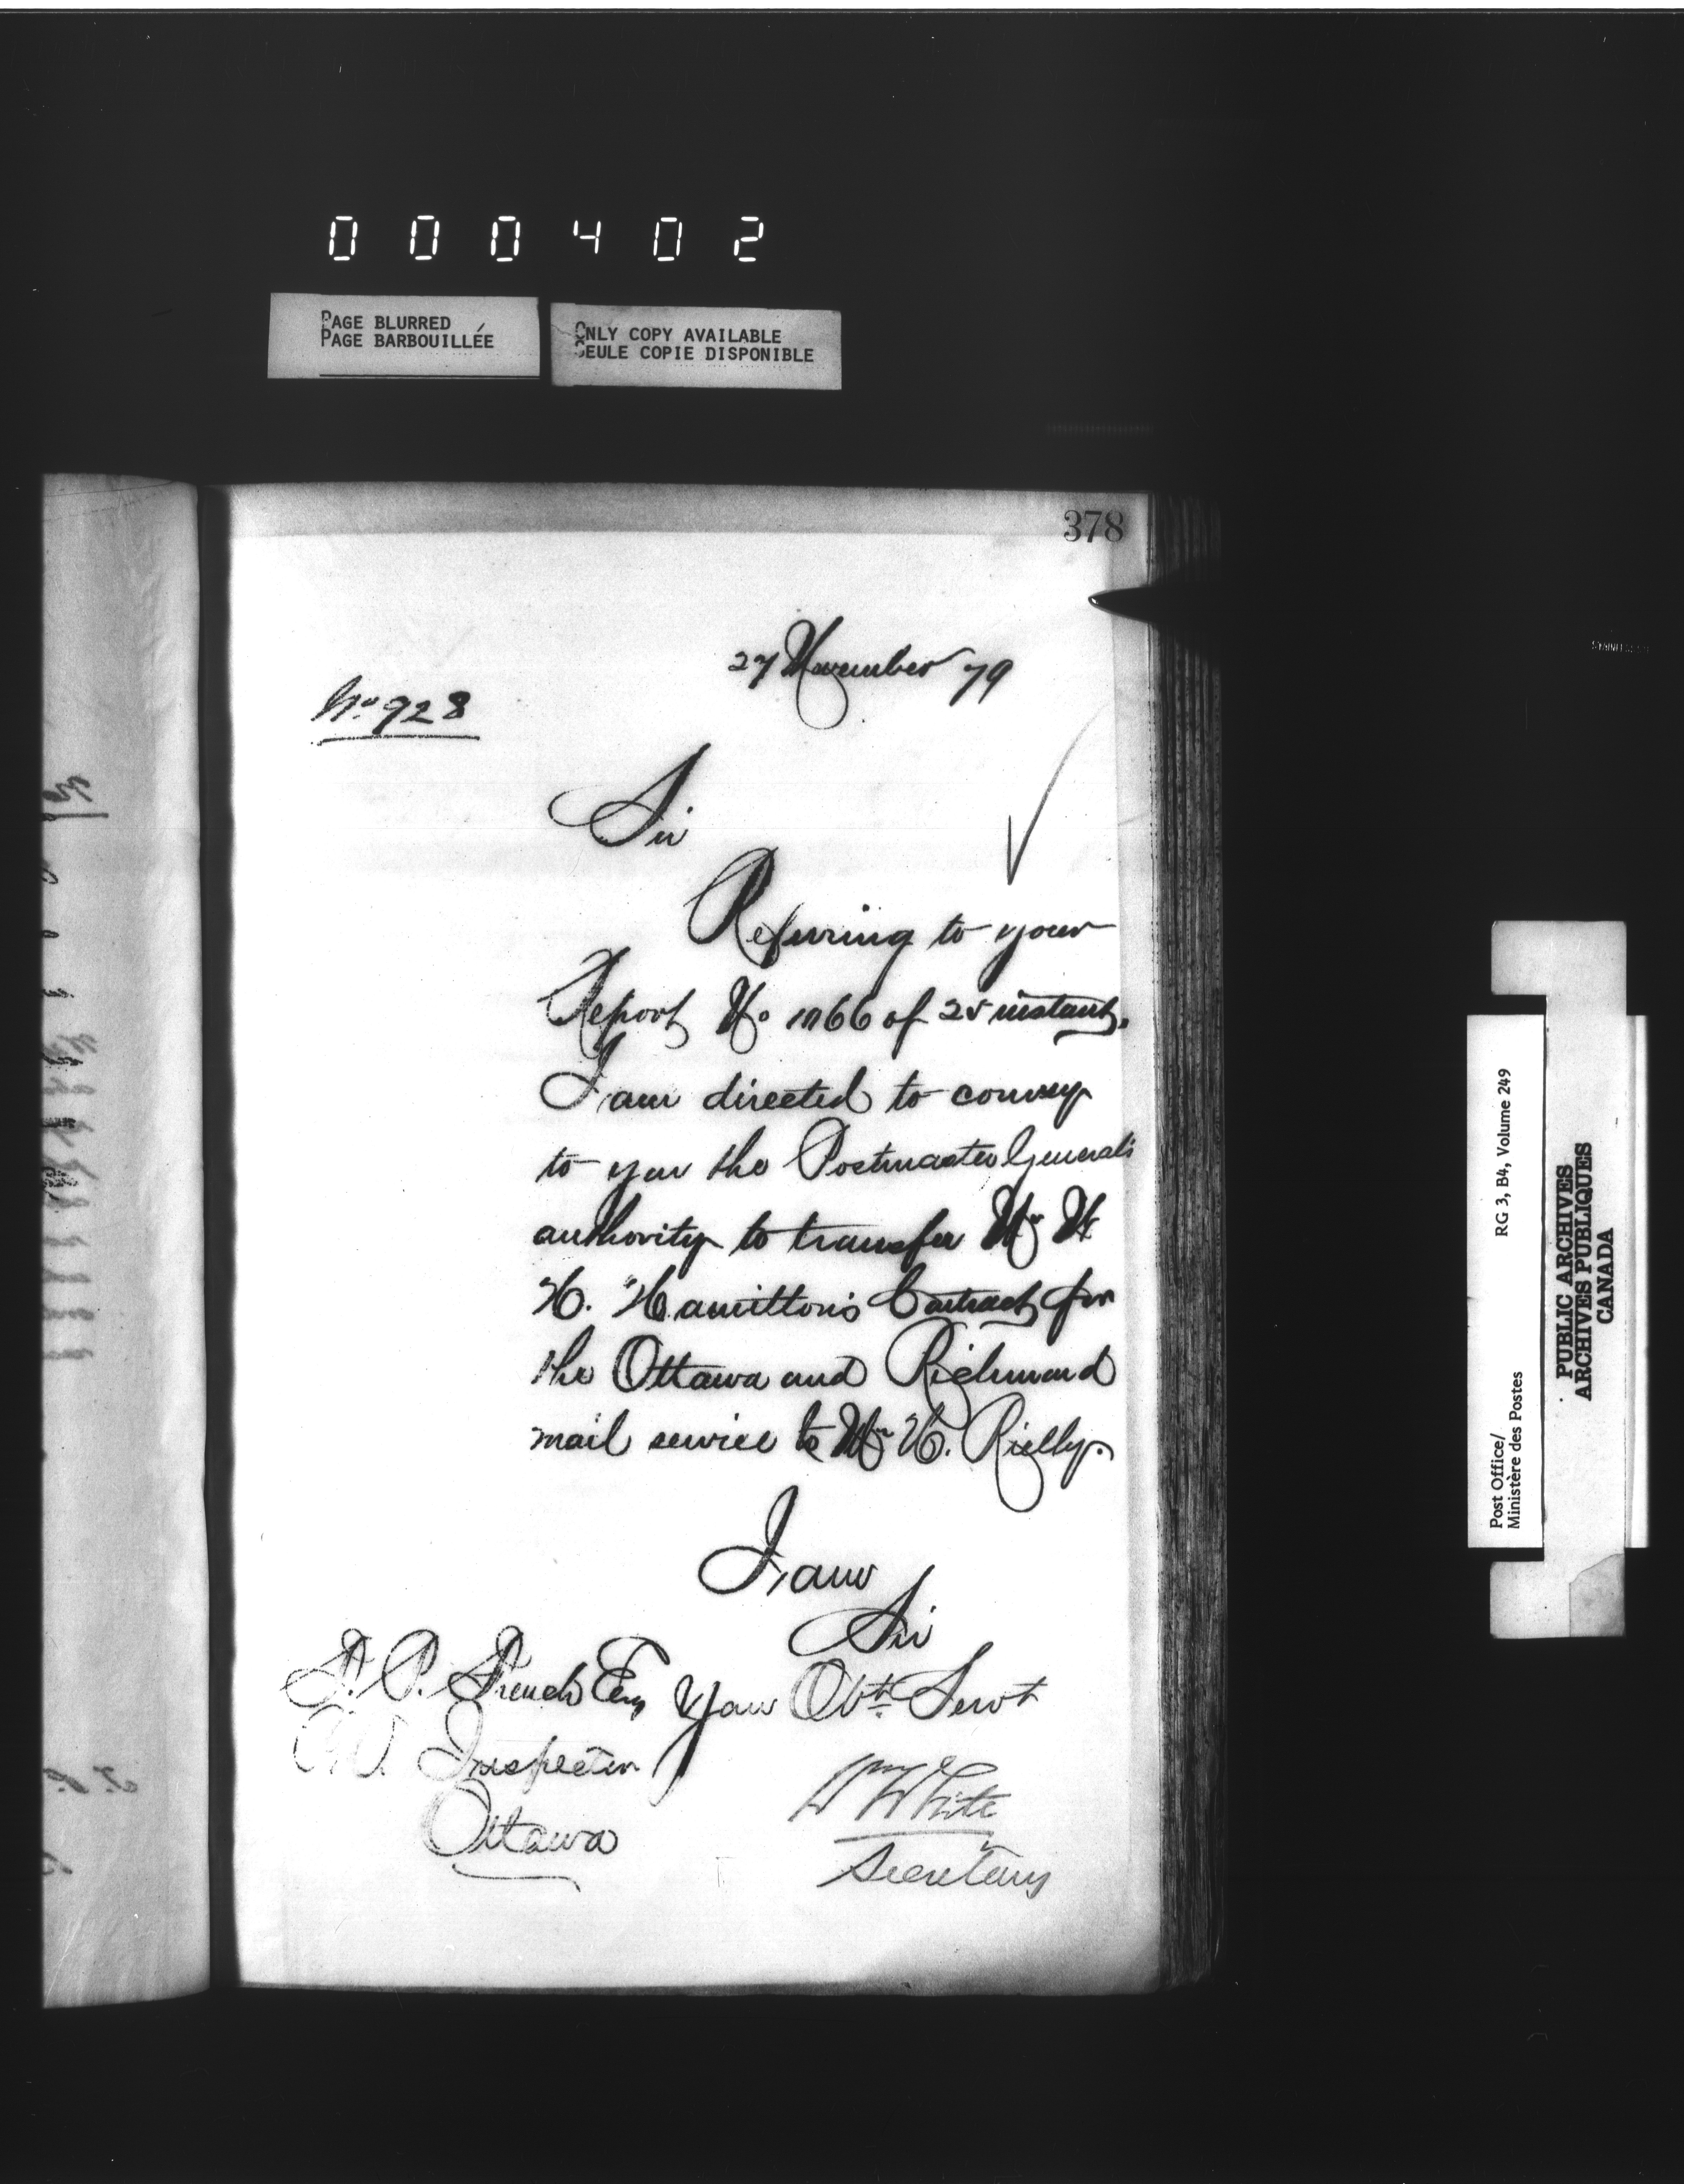 000402
PAGE BLURRED
PAGE BARBOUILLÉE
ONLY COPY AVAILABLE
SEULE COPIE DISPONIBLE
378
27 November 79
No. 928
Sir
Referring to your
Report No 1066 of 25 instant.
I am directed to convey
to you the Postmaster General's
authority to transfer Mr W
H. Hamilton's Contract for
the Ottawa and Richmond
mail service to Mr H. Rielly.
I am
Sir
Your Obt. Servt
T. P. French Esq
P.O. Inspector
Ottawa
Wm White
Secretary
Post Office/
Ministère des Postes
RG 3, B4, Volume 249
PUBLIC ARCHIVES
ARCHIVES PUBLIQUES
CANADA